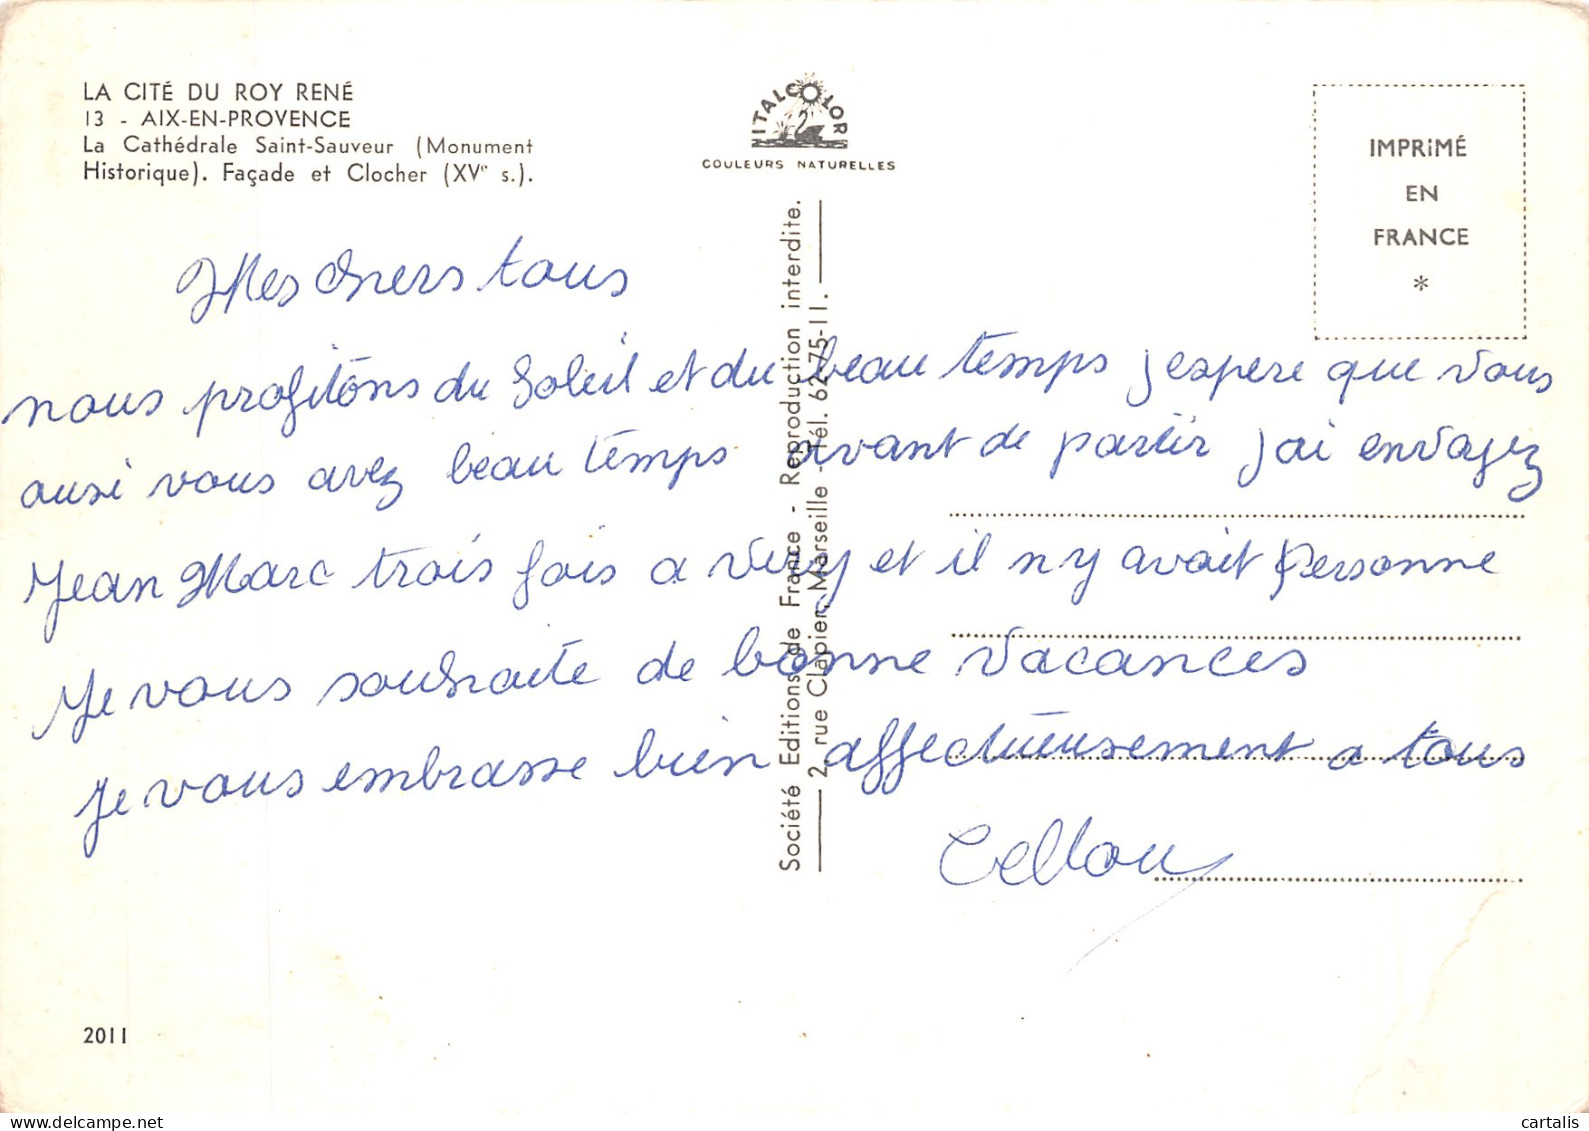 LA CITÉ DU ROY RENÉ
13 - AIX-EN-PROVENCE
La Cathédrale Saint-Sauveur (Monument
Historique). Façade et Clocher (XVe s.).
ITALCOLOR
COULEURS NATURELLES
IMPRIMÉ
EN
FRANCE
*
Mes chers tous
nous profitons du Soleil et du beau temps j espere que vous
ausi vous avez beau temps avant de partir j ai envoyez
Jean Marc trois fois a Viry et il n y avait personne
Je vous souhaite de bonne vacances
Je vous embrasse bien affectueusement a tous
Société Editions de France - Reproduction interdite.
2, rue Clapier, Marseille - Tél. 62-75-11.
2011
cartalis